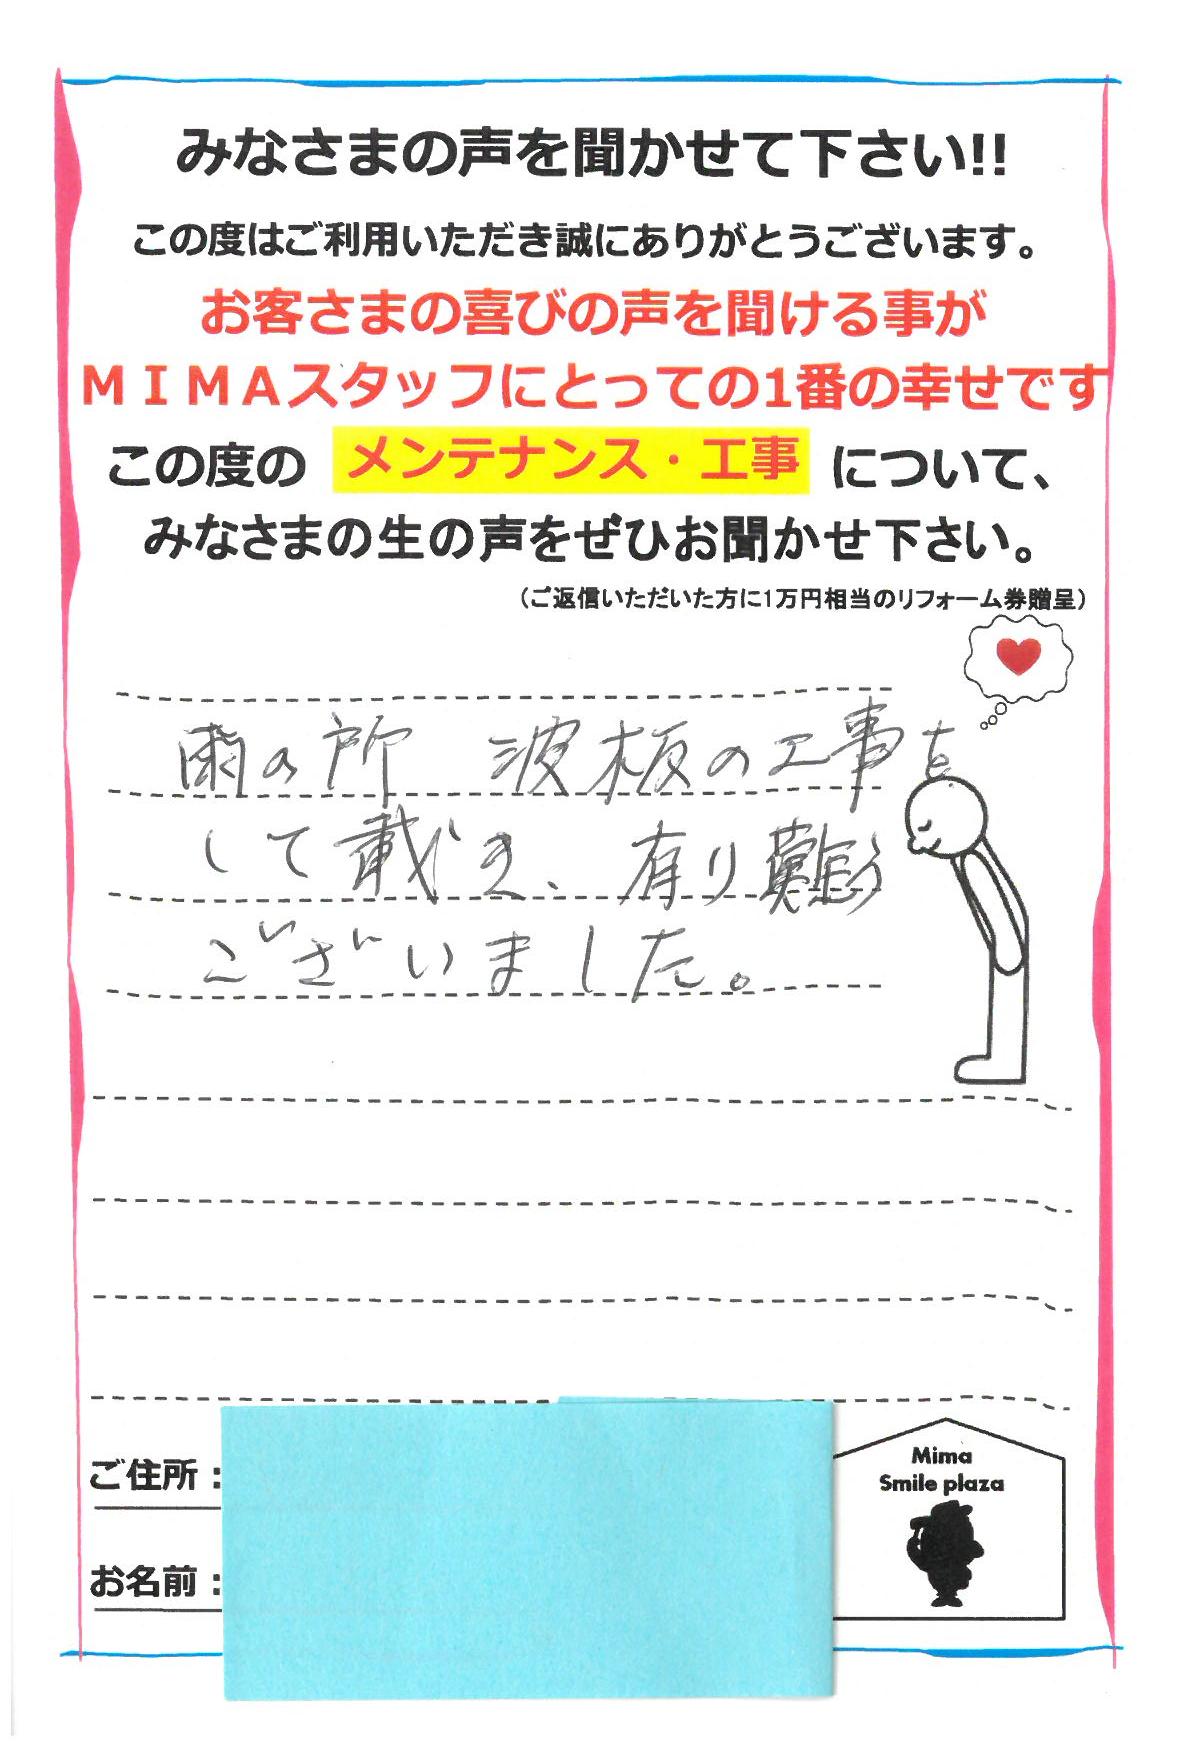 みなさまの声を聞かせて下さい!!
この度はご利用いただき誠にありがとうございます。
お客さまの喜びの声を聞ける事が
ＭＩＭＡスタッフにとっての1番の幸せです
この度の メンテナンス・工事 について、
みなさまの生の声をぜひお聞かせ下さい。
（ご返信いただいた方に1万円相当のリフォーム券贈呈）
雨の所 波板の工事を
して載き、有り難う
ございました。
ご住所：
お名前：
Mima
Smile plaza